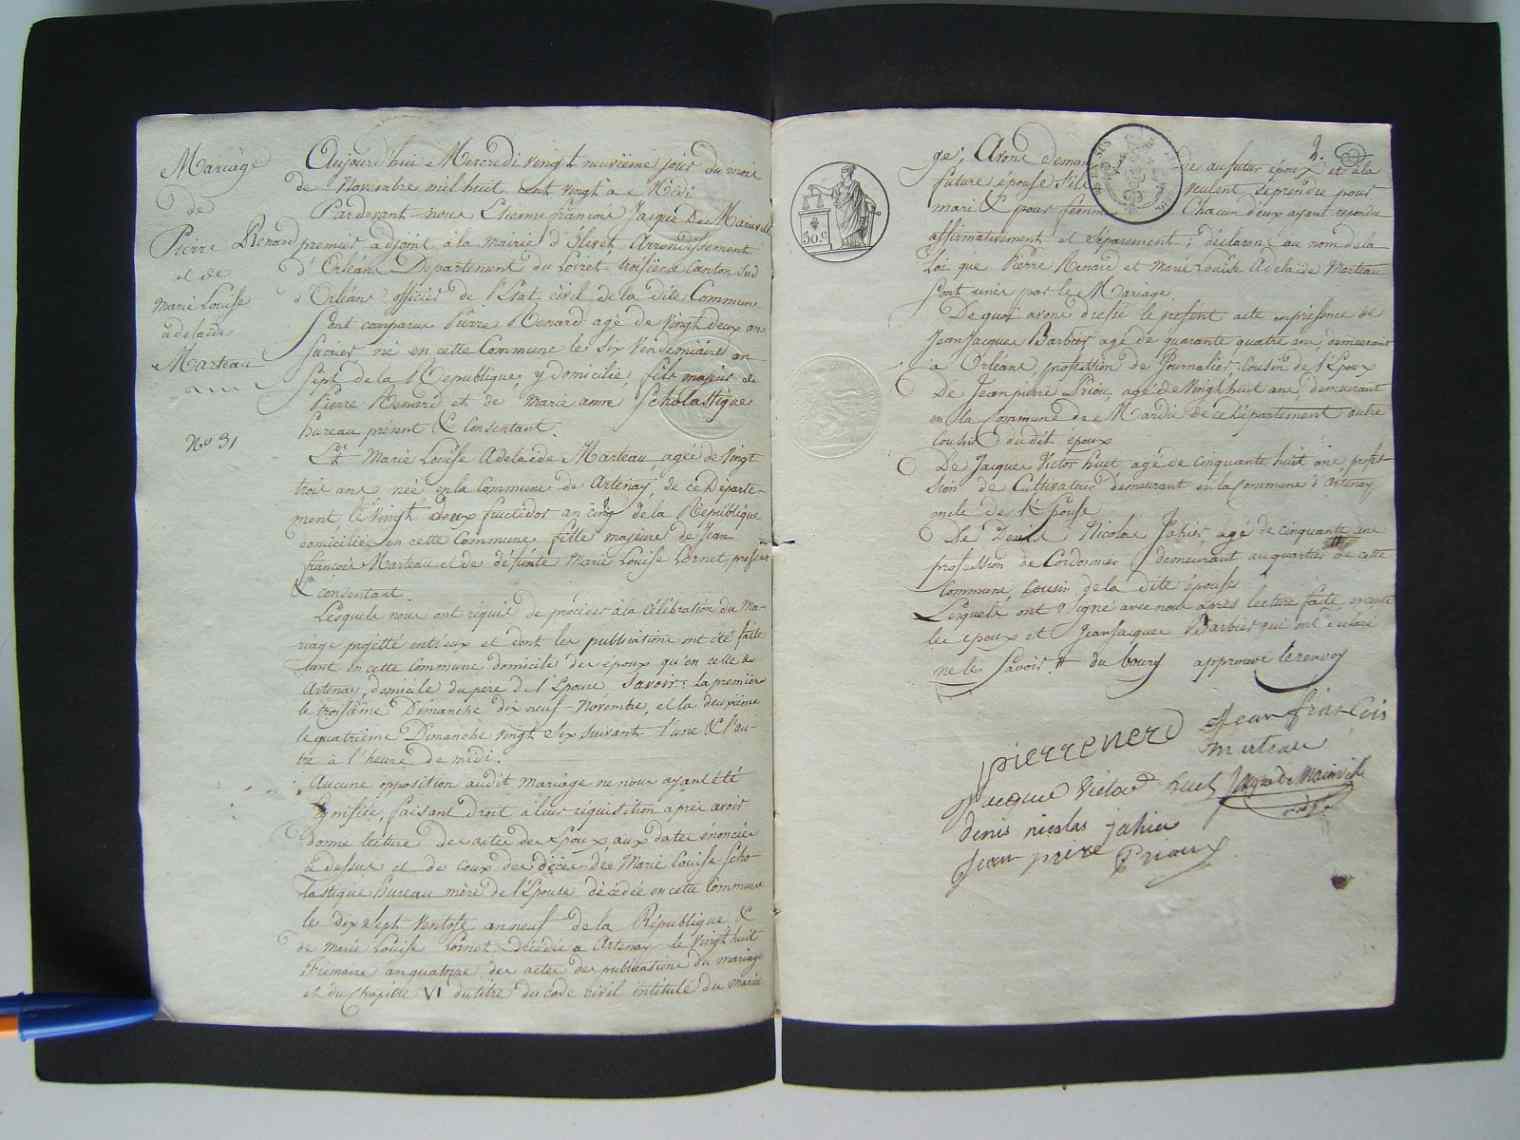 Mariage
de
Pierre Renard
et de
Marie Louise
adelaide
Marteau
No 31
Aujourd'hui Mercredi vingt neuvième jour du mois
de Novembre mil huit cent vingt à Midi
Pardevant nous Etienne françois Jacque De Mainville
premier adjoint à la mairie d'Olivet Arrondissement
d'Orléans Département du Loiret troisième Canton Sud
d'Orléans officier de l'Etat civil de la dite Commune
Sont comparus Pierre Renard agé de vingt deux ans
né en cette Commune le six Vendemiaire an
sept de la République, y domicilié, fils majeur de
Pierre Renard et de Marie anne Scholastique
bureau présent & consentant.
Et Marie Louise Adelaïde Marteau agée de vingt
trois ans née en la Commune de Artenay, de ce Départe-
ment, le vingt deux fructidor an cinq de la République
domiciliée en cette Commune, fille majeure de Jean
françois Marteau et de défunte Marie Louise Cornet, présent
& consentant.
Lesquels nous ont requis de procéder à la célébration du Ma-
riage projetté entr'eux et dont les publications ont été faite
tant en cette Commune domicile des époux qu'en celle de
Artenay, domicile du père de l'Epouse Savoir: la premiere
le troisième Dimanche dix neuf Novembre, et la deuxième
le quatrième Dimanche vingt six suivant l'une & l'au-
tre à l'heure de midi.
Aucune opposition audit mariage ne nous ayant été
signifiée, faisant droit à leur réquisition après avoir
donné lecture des actes des Epoux aux dates énoncée
ci dessus et de ceux des décès des Marie Louise Scho-
lastique Bureau mère de l'Epouse décédée en cette Commune
le dix sept Ventose an neuf de la République &
de Marie Louise Cornet décédée a Artenay le vingt huit
frimaire an quatorze des actes des publications du mariage
et du chapitre VI du titre du code civil intitulé du maria
2.
ge, Avons deman de au futur époux et à la
future épouse s'ils veulent se prendre pour
mari & pour femme Chacun d'eux ayant répondu
affirmativement et séparement; déclarons au nom de la
Loi que Pierre Renard et Marie Louise Adelaïde Marteau
sont unis par le Mariage.
De quoi avons dressé le présent acte en présence de
Jean Jacques Barbier agé de quarante quatre ans demeurant
à Orléans, profession de Journalier, Cousin de l'Epoux
De Jean pierre Prioux, agé de vingt huit ans, demeurant
en la Commune de Mardié de ce Département autre
cousin dudit époux
De Jacques Victor huet agé de cinquante huit ans profes-
sion de Cultivateur demeurant en la Commune d'Artenay
oncle de l'Epouse
De Denis Nicolas Jahier agé de cinquante ans
profession de Cordonnier demeurant au quartier # de cette
Commune, cousin de la dite épouse
Lesquels ont signé avec nous après lecture faite, excepté
les époux et Jean Jacques Barbier qui ont déclaré
ne le savoir # du bourg approuvé le renvoy
pierrenerd
Jean françois
marteau
Jacque Victor huet Jacque De Mainville
denis nicolas jahier
Jean pierre Prioux
50 c